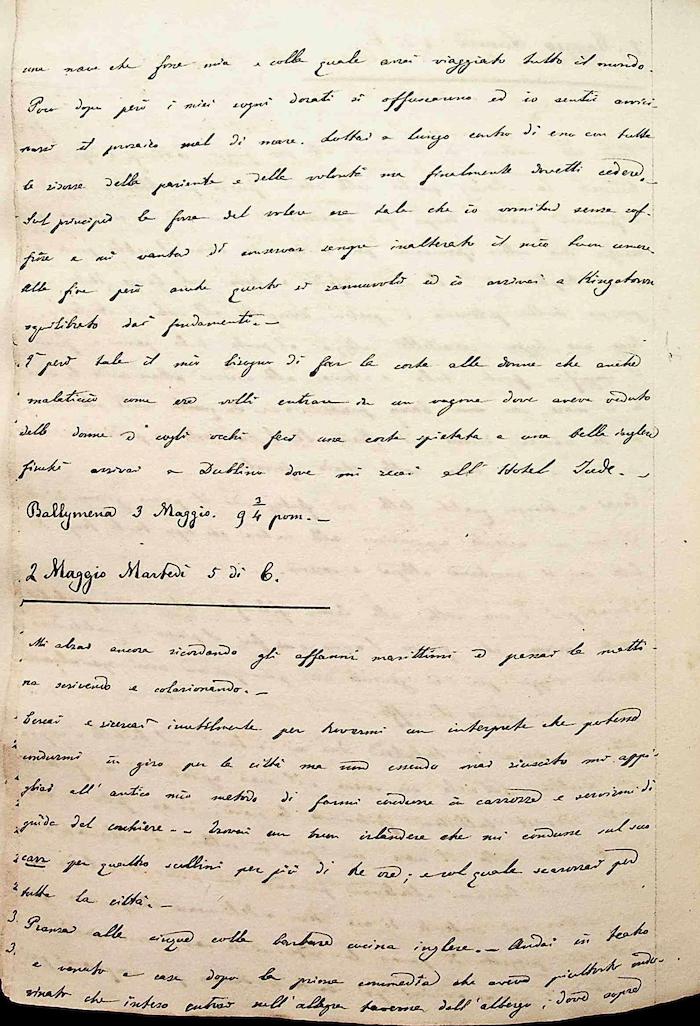 una nave che fosse mia e colla quale avrei viaggiato tutto il mondo.
Poco dopo però i miei sogni dorati si offuscarono ed io sentii avvici-
narsi il prosaico mal di mare. Lottai a lungo contro di esso con tutte
le risorse della paziente e della volontà ma finalmente dovetti cedere.
Sul principio la forza del volere era tale che io vomitai senza sof-
frire e mi vantai di conservar sempre inalterato il mio buon umore.
Alla fine però anche questo si rannuvolò ed io arrivai a Kingstown
squilibrato dai fondamenti. –
È però tale il mio bisogno di far la corte alle donne che anche
malaticcio come ero volli entrare in un vagone dove aveva veduto
delle donne e cogli occhi feci una corte spietata a una bella inglese
finchè arrivai a Dublino dove mi recai all' Hotel Jude. –
Ballymena 3 Maggio. 9 3/4 pom. –
2 Maggio Martedì 5 di C.
Mi alzai ancora ricordando gli affanni marittimi e passai la matti-
na scrivendo e colazionando. –
Cercai e ricercai inutilmente per trovarmi un interprete che potesse
condurmi in giro per la città ma non essendo mai riuscito mi appi-
gliai all' antico mio metodo di farmi condurre in carrozza e servirmi di
guida del cocchiere. – Trovai un buon irlandese che mi condusse sul suo
carr per quattro scellini per più di tre ore; e col quale scarrozzai per
tutta la città. –
Pranzai alle cinque colla barbara cucina inglese. – Andai in teatro
e venuto a casa dopo la prima commedia che aveva piuttosto indo-
vinato che inteso entrai nell' allegra taverna dell' albergo, dove sopra